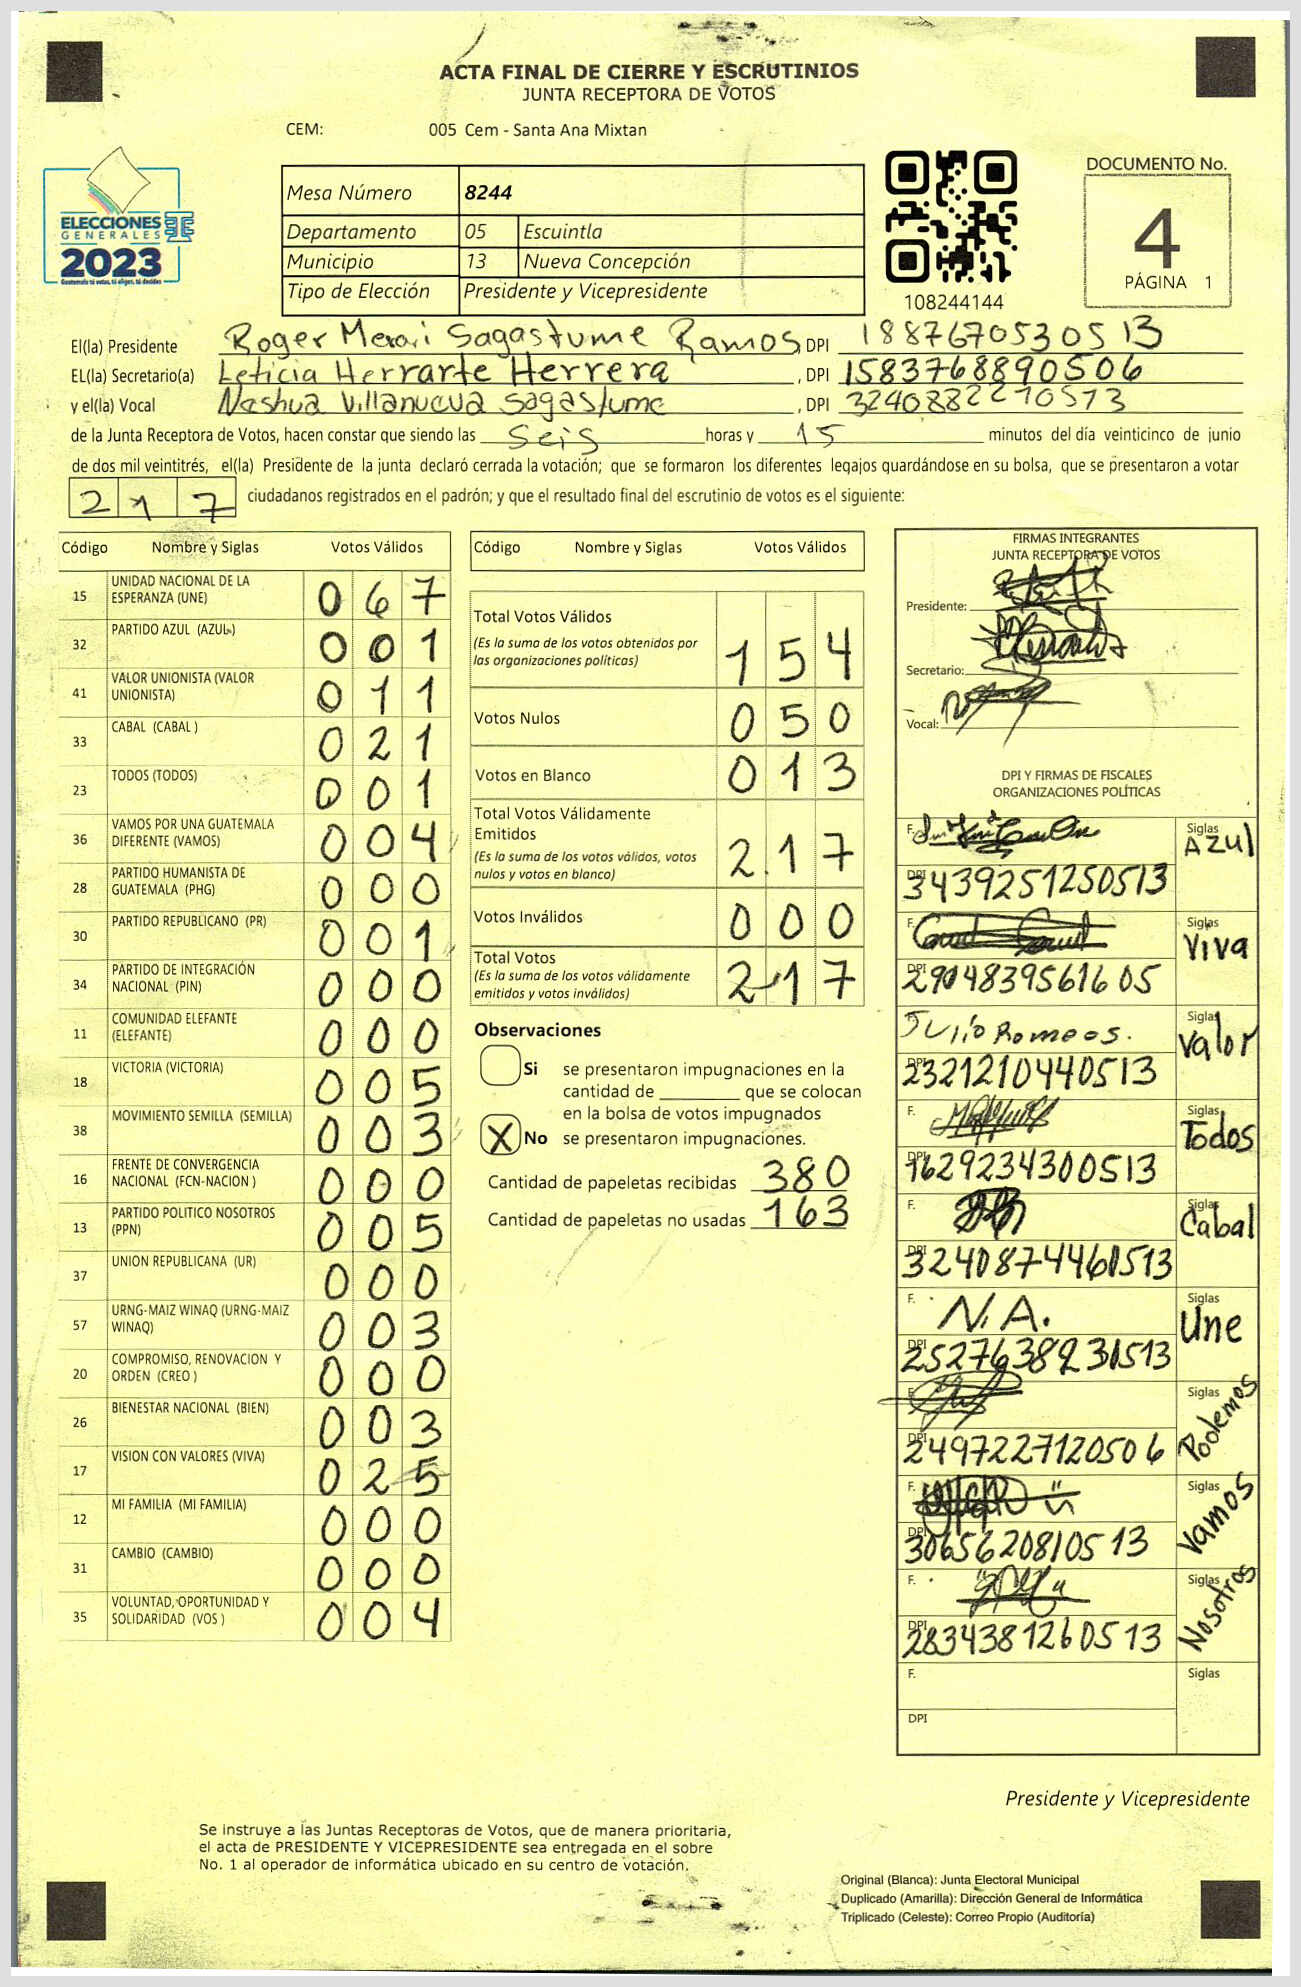 ACTA FINAL DE CIERRE Y ESCRUTINIOS
JUNTA RECEPTORA DE VOTOS
CEM: 005 Cem - Santa Ana Mixtan
ELECCIONES
GENERALES
2023
Guatemala tú votas, tú eliges, tú decides
Mesa Número 8244
Departamento 05 Escuintla
Municipio 13 Nueva Concepción
Tipo de Elección Presidente y Vicepresidente
108244144
DOCUMENTO No.
4
PÁGINA 1
El(la) Presidente Roger Merari Sagastume Ramos, DPI 1887670530513
EL(la) Secretario(a) Leticia Herrarte Herrera, DPI 1583768890506
y el(la) Vocal Nashua Villanueva Sagastume, DPI 3240882210513
de la Junta Receptora de Votos, hacen constar que siendo las Seis horas y 15 minutos del día veinticinco de junio
de dos mil veintitrés, el(la) Presidente de la junta declaró cerrada la votación; que se formaron los diferentes legajos guardándose en su bolsa, que se presentaron a votar
217 ciudadanos registrados en el padrón; y que el resultado final del escrutinio de votos es el siguiente:
Código Nombre y Siglas Votos Válidos
15 UNIDAD NACIONAL DE LA ESPERANZA (UNE) 067
32 PARTIDO AZUL (AZUL) 001
41 VALOR UNIONISTA (VALOR UNIONISTA) 011
33 CABAL (CABAL ) 021
23 TODOS (TODOS) 001
36 VAMOS POR UNA GUATEMALA DIFERENTE (VAMOS) 004
28 PARTIDO HUMANISTA DE GUATEMALA (PHG) 000
30 PARTIDO REPUBLICANO (PR) 001
34 PARTIDO DE INTEGRACIÓN NACIONAL (PIN) 000
11 COMUNIDAD ELEFANTE (ELEFANTE) 000
18 VICTORIA (VICTORIA) 005
38 MOVIMIENTO SEMILLA (SEMILLA) 003
16 FRENTE DE CONVERGENCIA NACIONAL (FCN-NACION ) 000
13 PARTIDO POLITICO NOSOTROS (PPN) 005
37 UNION REPUBLICANA (UR) 000
57 URNG-MAIZ WINAQ (URNG-MAIZ WINAQ) 003
20 COMPROMISO, RENOVACION Y ORDEN (CREO ) 000
26 BIENESTAR NACIONAL (BIEN) 003
17 VISION CON VALORES (VIVA) 025
12 MI FAMILIA (MI FAMILIA) 000
31 CAMBIO (CAMBIO) 000
35 VOLUNTAD, OPORTUNIDAD Y SOLIDARIDAD (VOS ) 004
Código Nombre y Siglas Votos Válidos
Total Votos Válidos
(Es la suma de los votos obtenidos por las organizaciones políticas) 154
Votos Nulos 050
Votos en Blanco 013
Total Votos Válidamente Emitidos
(Es la suma de los votos válidos, votos nulos y votos en blanco) 217
Votos Inválidos 000
Total Votos
(Es la suma de los votos válidamente emitidos y votos inválidos) 217
Observaciones
Si se presentaron impugnaciones en la
cantidad de ________ que se colocan
en la bolsa de votos impugnados
X No se presentaron impugnaciones.
Cantidad de papeletas recibidas 380
Cantidad de papeletas no usadas 163
FIRMAS INTEGRANTES
JUNTA RECEPTORA DE VOTOS
Presidente:
Secretario:
Vocal:
DPI Y FIRMAS DE FISCALES
ORGANIZACIONES POLÍTICAS
F. Siglas Azul
DPI 3439251250513
F. Siglas Viva
DPI 2904839561605
F. Julio Romeos. Siglas Valor
DPI 2321210440513
F. Siglas Todos
DPI 1629234300513
F. Siglas Cabal
DPI 3240874460513
F. N.A. Siglas Une
DPI 2527638230513
F. Siglas Podemos
DPI 2497227120506
F. Siglas Vamos
DPI 3065620810513
F. Siglas Nosotros
DPI 2834381260513
F. Siglas
DPI
Presidente y Vicepresidente
Se instruye a las Juntas Receptoras de Votos, que de manera prioritaria,
el acta de PRESIDENTE Y VICEPRESIDENTE sea entregada en el sobre
No. 1 al operador de informática ubicado en su centro de votación.
Original (Blanca): Junta Electoral Municipal
Duplicado (Amarilla): Dirección General de Informática
Triplicado (Celeste): Correo Propio (Auditoría)